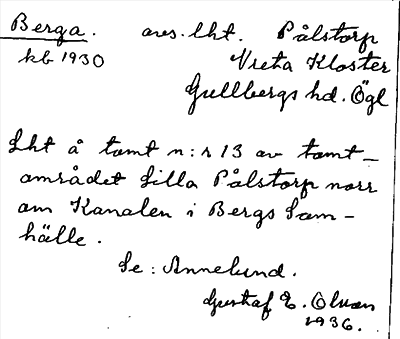 Berga. avs. lht. Pålstorp
kb 1930 Vreta Kloster
Gullbergs hd. Ögl
Lht å tomt n:r 13 av tomt-
området Lilla Pålstorp norr
om Kanalen i Bergs Sam-
hälle.
Se: Annelund.
Gustaf E. Olson
1936.